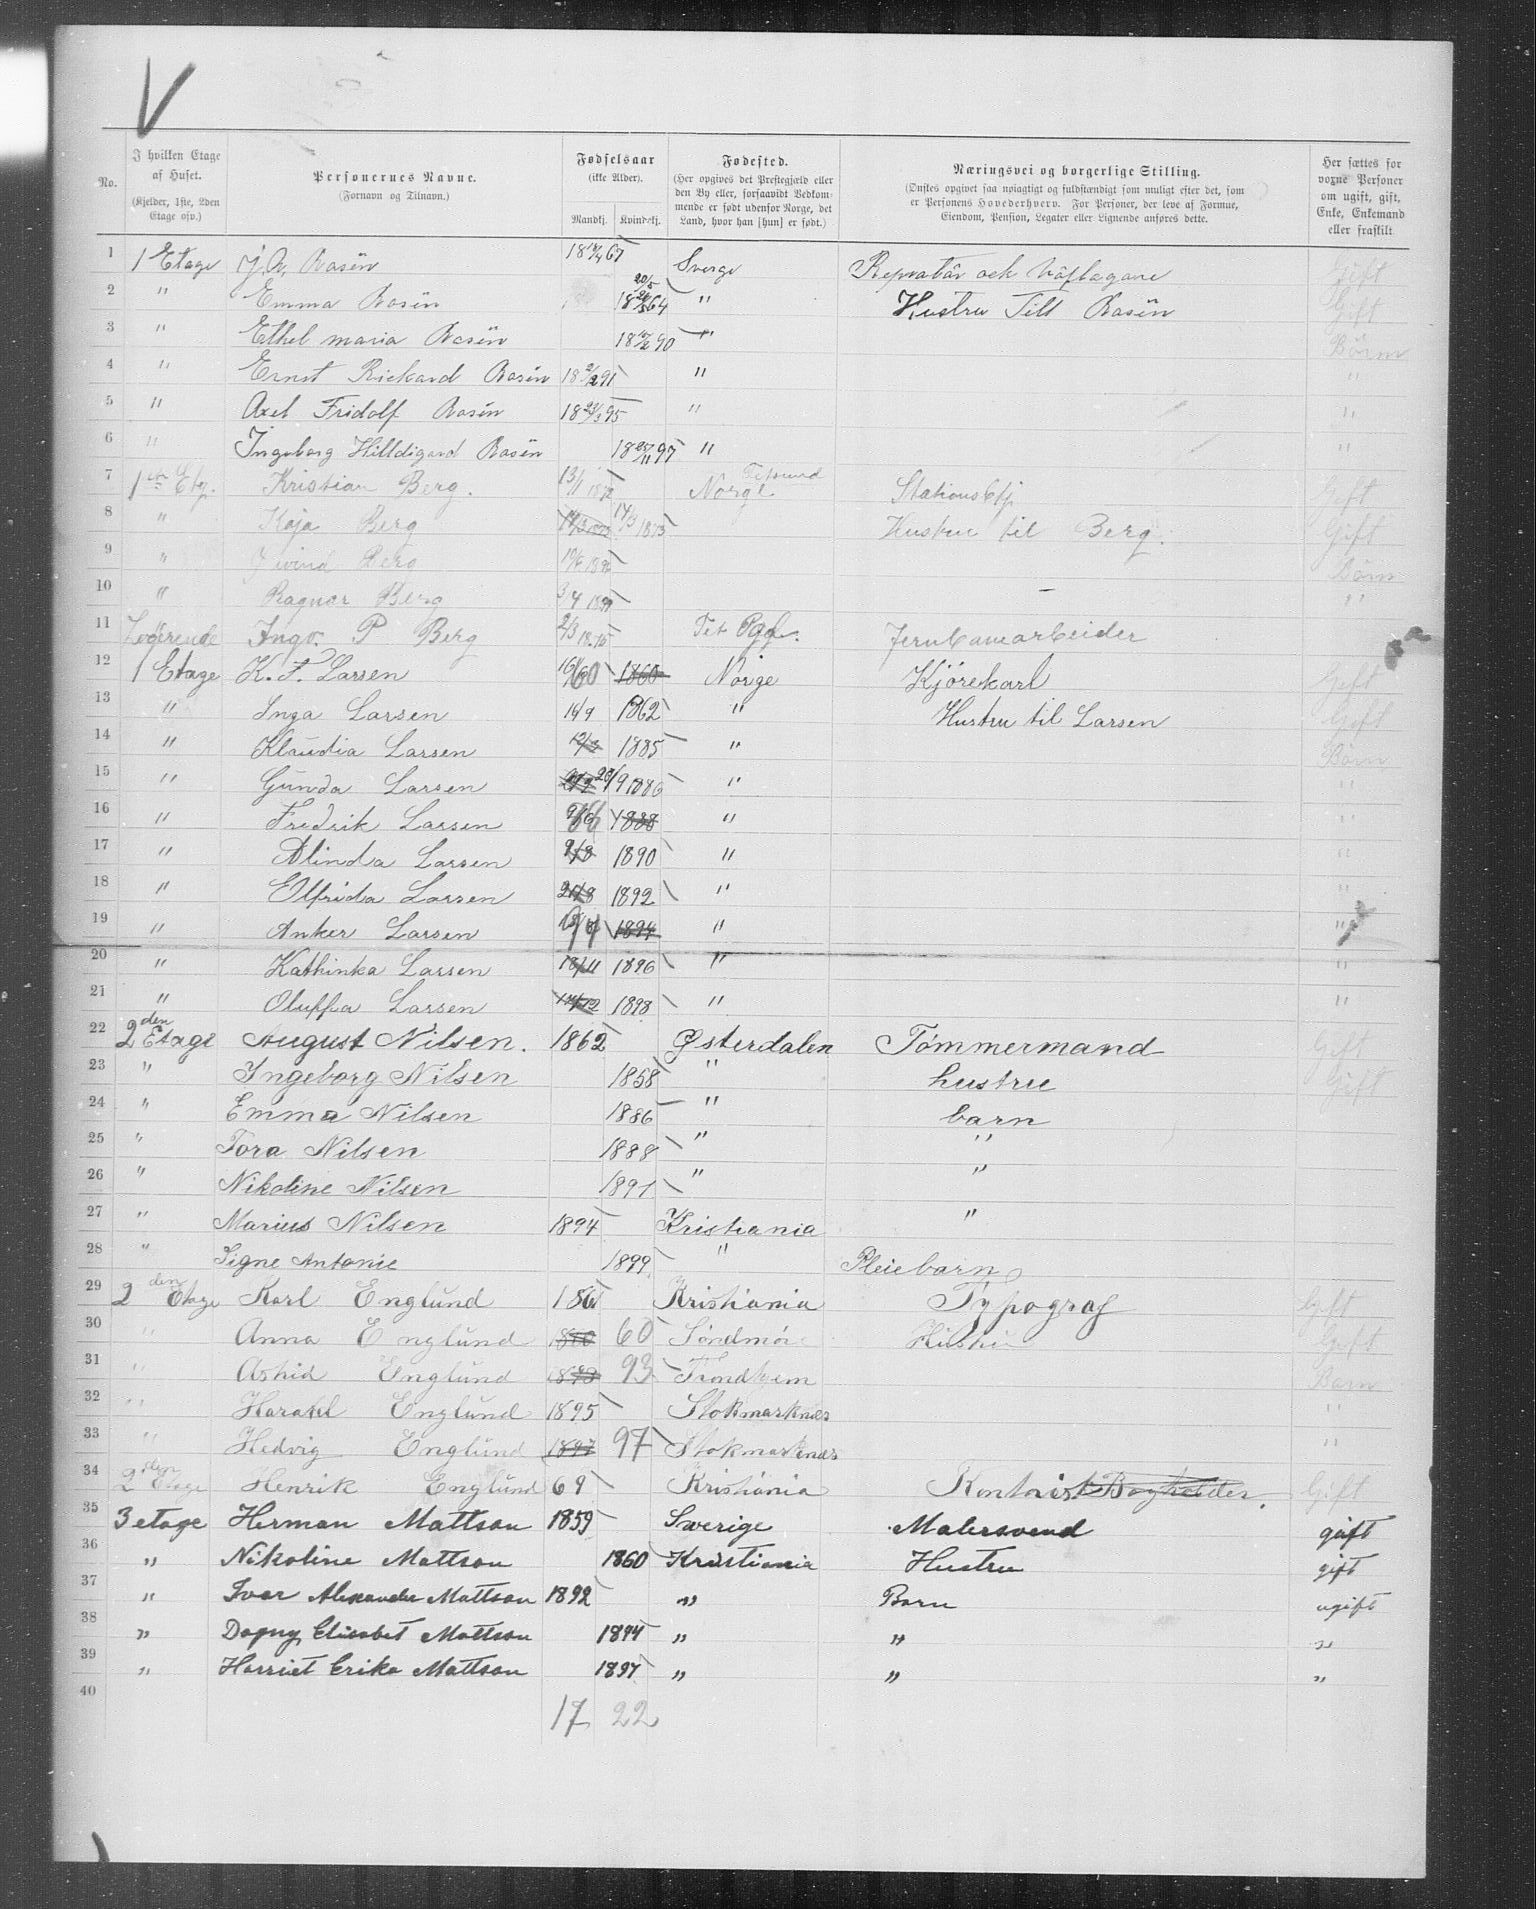 V
No.
I hvilken Etage af Huset. (Kjelder, 1ste, 2den Etage osv.)
Personernes Navne. (Fornavn og Tilnavn.)
Fødselsaar (ikke Alder). Mandkj. Kvindekj.
Fødested. (Her opgives det Prestegjæld eller den By eller, forsaavidt Vedkommende er født udenfor Norge, det Land, hvor han [hun] er født.)
Næringsvei og borgerlige Stilling. (Ønskes opgivet saa nøiagtigt og fuldstændigt som muligt efter det, som er Personens Hovederhverv. For Personer, der leve af Formue, Eiendom, Pension, Legater eller Lignende anføres dette.)
Her sættes for voxne Personer om ugift, gift, Enke, Enkemand eller fraskilt.
1 1 Etage Rosén 67 Sverge Gift
2 " Emma Rosén 18 64 " Hustru Till Rosén Gift
3 " Ethel maria Rosén 18 90 " Börn
4 " Ernst Rickard Rosén 18 91 " "
5 " Axel Fridolf Rosén 18 95 " "
6 " Ingeborg Hilldigard Rosén 18 97 " "
7 1 Etg. Kristian Berg. 13/1 Norge Gift
8 " Kaja Berg 14/3 1873 Hustru til Berg. Gift
9 " Berg Börn
10 " Ragnar Berg "
11 Logerende Ingv. P Berg Jernbanearbeider
12 1 Etage K. F. Larsen 60 1860 Norge Kjörekarl Gift
13 " Inga Larsen 1862 " Hustru til Larsen Gift
14 " Klaudia Larsen 1885 " Börn
15 " Gunda Larsen 1886 " "
16 " Fredrik Larsen 1888 " "
17 " Alinda Larsen 1890 " "
18 " Elfrida Larsen 1892 " "
19 " Anker Larsen 1894 " "
20 " Kathinka Larsen 18/11 1896 " "
21 " Oluffa Larsen 1898 " "
22 2 den Etage August Nilsen. 1862 Østerdalen Tömmermand Gift
23 " Ingeborg Nilsen 1858 " hustru Gift
24 " Emma Nilsen 1886 " barn
25 " Tora Nilsen 1888 " "
26 " Nikoline Nilsen 1891 " "
27 " Marius Nilsen 1894 Kristiania "
28 " Signe Antonie 1899 " Pleiebarn
29 2 den Etage Karl Englund Kristiania Typograf Gift
30 " Anna Englund 60 Söndmöre Hustru Gift
31 " Astrid Englund 1893 93 Trondhjem Barn
32 " Englund 1895 Stokmarknes "
33 " Hedvig Englund 1897 97 Stokmarknes "
34 2 den Etage Henrik Englund 69 Kristiania Kontorist Bogholder. Gift
35 3 etage Herman Mattson 1859 Swerige Malersvend gift
36 " Nikoline Mattson 1860 Kristiania Hustru gift
37 " Ivar Alexander Mattson 1892 " Barn ugift
38 " Dagny Elisabet Mattson 1894 " " "
39 " Harriet Erika Mattson 1897 " " "
40
17 22